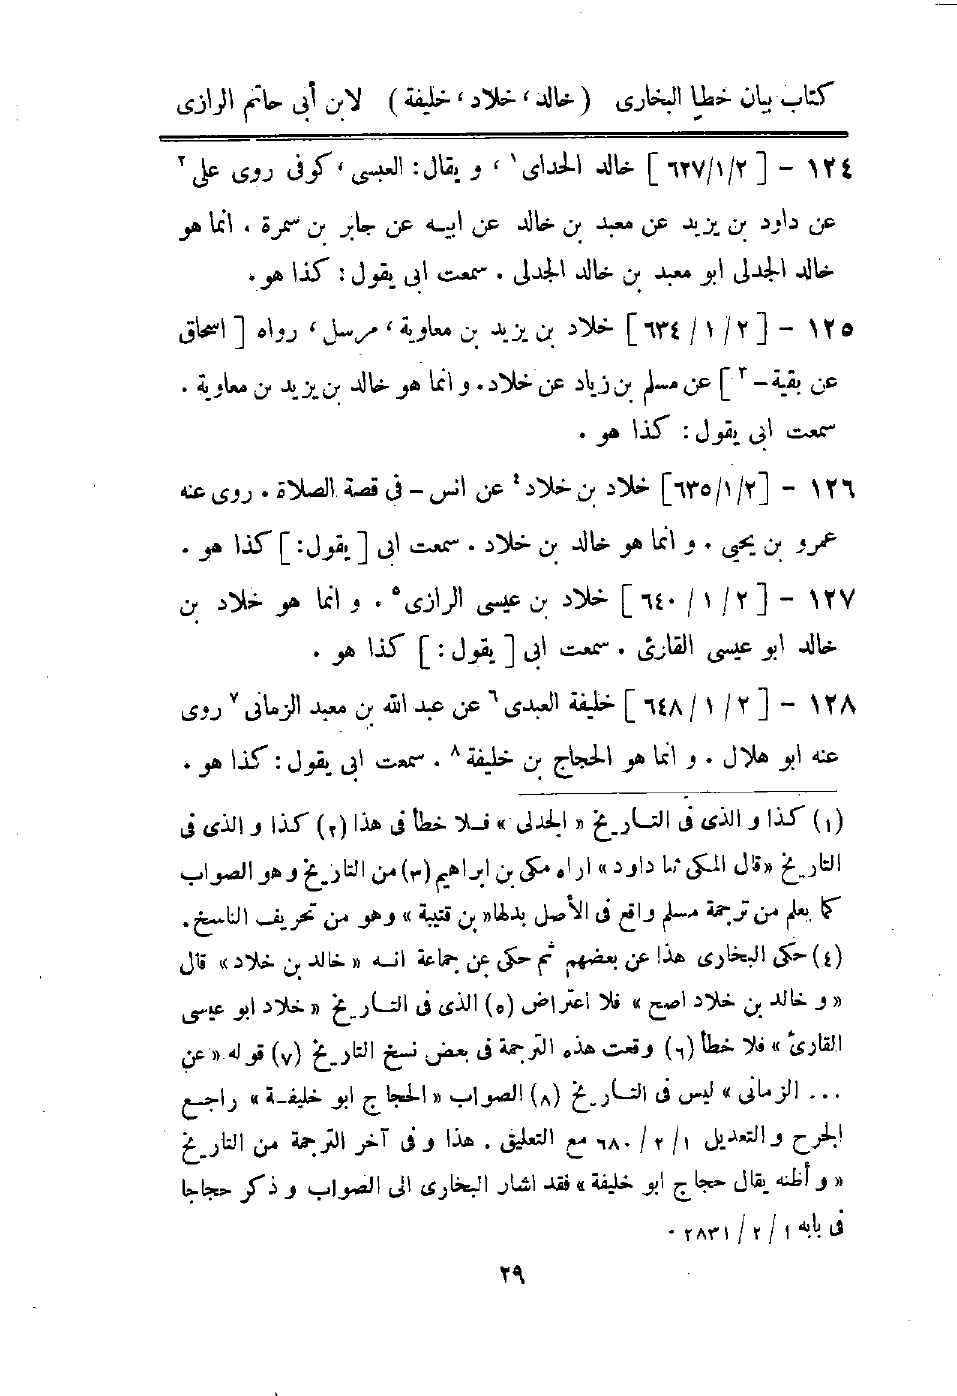 كتاب بيان خطإ البخارى ( خالد ، خلاد ، خليفة ) لابن أبى حاتم الرازى
١٢٤ - [ ٦٢٧/١/٢ ] خالد الحداى ١ ، و يقال : العبسى ، كوفى روى على ٢
عن داود بن يزيد عن معبد بن خالد عن ابيه عن جابر بن سمرة . انما هو
خالد الجدلى ابو معبد بن خالد الجدلى . سمعت ابى يقول : كذا هو .
١٢٥ - [ ٦٣٤/١/٢ ] خلاد بن يزيد بن معاوية ، مرسل ، رواه [ اسحاق
عن بقية - ٣ ] عن مسلم بن زياد عن خلاد . و انما هو خالد بن يزيد بن معاوية .
سمعت ابى يقول : كذا هو .
١٢٦ - [٦٣٥/١/٢] خلاد بن خلاد ٤ عن انس - فى قصة الصلاة . روى عنه
عمرو بن يحيى . و انما هو خالد بن خلاد . سمعت ابى [ يقول : ] كذا هو .
١٢٧ - [ ٦٤٠/١/٢ ] خلاد بن عيسى الرازى ٥ . و انما هو خلاد بن
خالد ابو عيسى القارئ . سمعت ابى [ يقول : ] كذا هو .
١٢٨ - [ ٦٤٨/١/٢ ] خليفة العبدى ٦ عن عبد الله بن معبد الزمانى ٧ روى
عنه ابو هلال . و انما هو الحجاج بن خليفة ٨ . سمعت ابى يقول : كذا هو .
(١) كذا و الذى فى التاريخ « الجدلى » فلا خطأ فى هذا (٢) كذا و الذى فى
التاريخ «قال المكى نا داود» اراه مكى بن ابراهيم (٣) من التاريخ وهو الصواب
كما يعلم من ترجمة مسلم واقع فى الأصل بدلها« بن قتيبة » وهو من تحريف الناسخ .
(٤) حكى البخارى هذا عن بعضهم ثم حكى عن جماعة انه « خالد بن خلاد » قال
« و خالد بن خلاد اصح » فلا اعتراض (٥) الذى فى التاريخ « خلاد ابو عيسى
القارئ » فلا خطأ (٦) وقعت هذه الترجمة فى بعض نسخ التاريخ (٧) قوله « عن
... الزمانى » ليس فى التاريخ (٨) الصواب « الحجاج ابو خليفة » راجع
الجرح والتعديل ١ / ٢ / ٦٨٠ مع التعليق . هذا و فى آخر الترجمة من التاريخ
« و أظنه يقال حجاج ابو خليفة » فقد اشار البخارى الى الصواب و ذكر حجاجا
فى بابه ١ / ٢ / ٢٨٣١ .
٢٩